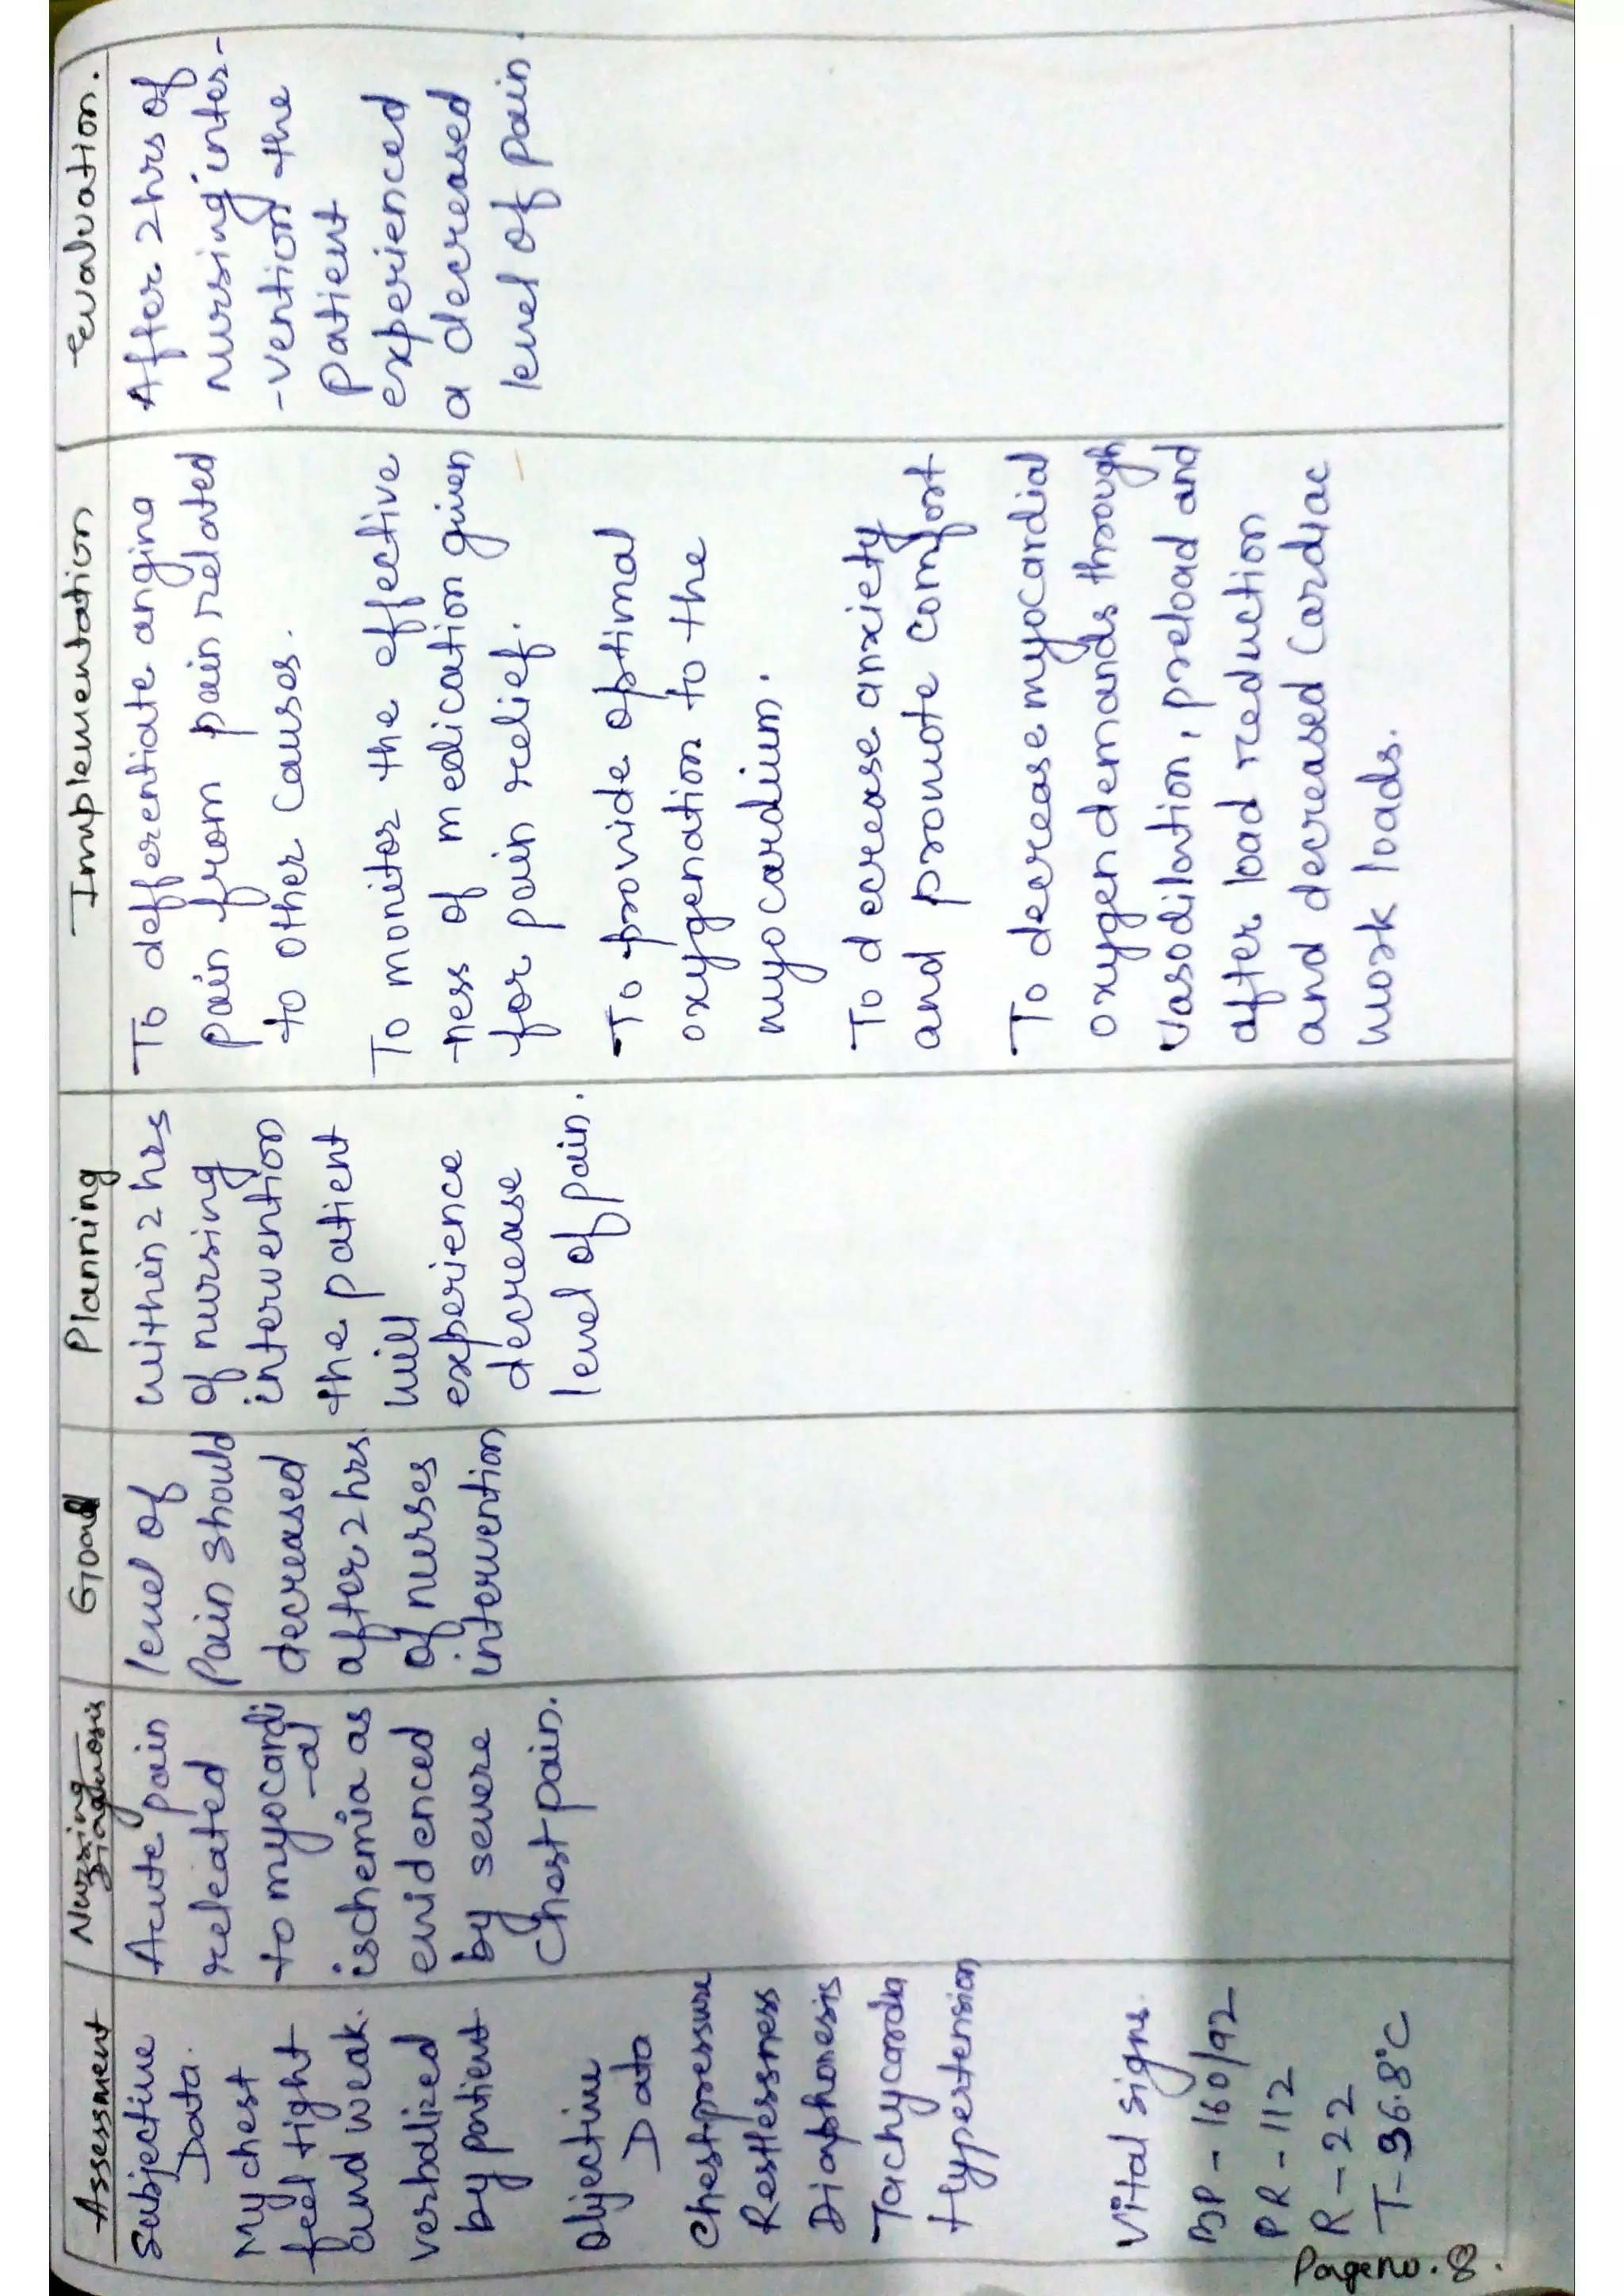 Assessment
Subjective
Data.
My chest
feel tight
and weak.
verbalized
by patient
Objective
Data
Chest pressure
Restlessness
Diaphoresis
Tachycardia
Hypertension
Vital signs.
BP - 160/92
PR - 112
R - 22
T - 36.8°C
Nursing
Diagnosis
Acute pain
releated
to myocardi
-al
ischemia as
evidenced
by severe
Chest pain.
Goal
level of
Pain should
decreased
after 2 hrs
of nurses
intervention
Planning
within 2 hrs
of nursing
intervention
the patient
will
experience
decrease
level of pain.
Implementation
To defferentiate angina
pain from pain related
to other causes.
To monitor the effective
-ness of medication given
for pain relief.
To provide optimal
oxygenation to the
myocardium.
To decrease anxiety
and promote comfort
To decrease myocardial
oxygen demands through
Vasodilation, preload and
after load reduction
and decreased Cardiac
work loads.
Evaluation.
After 2 hrs of
nursing inter-
-vention the
patient
experienced
a decreased
level of pain.
Page no. 8.